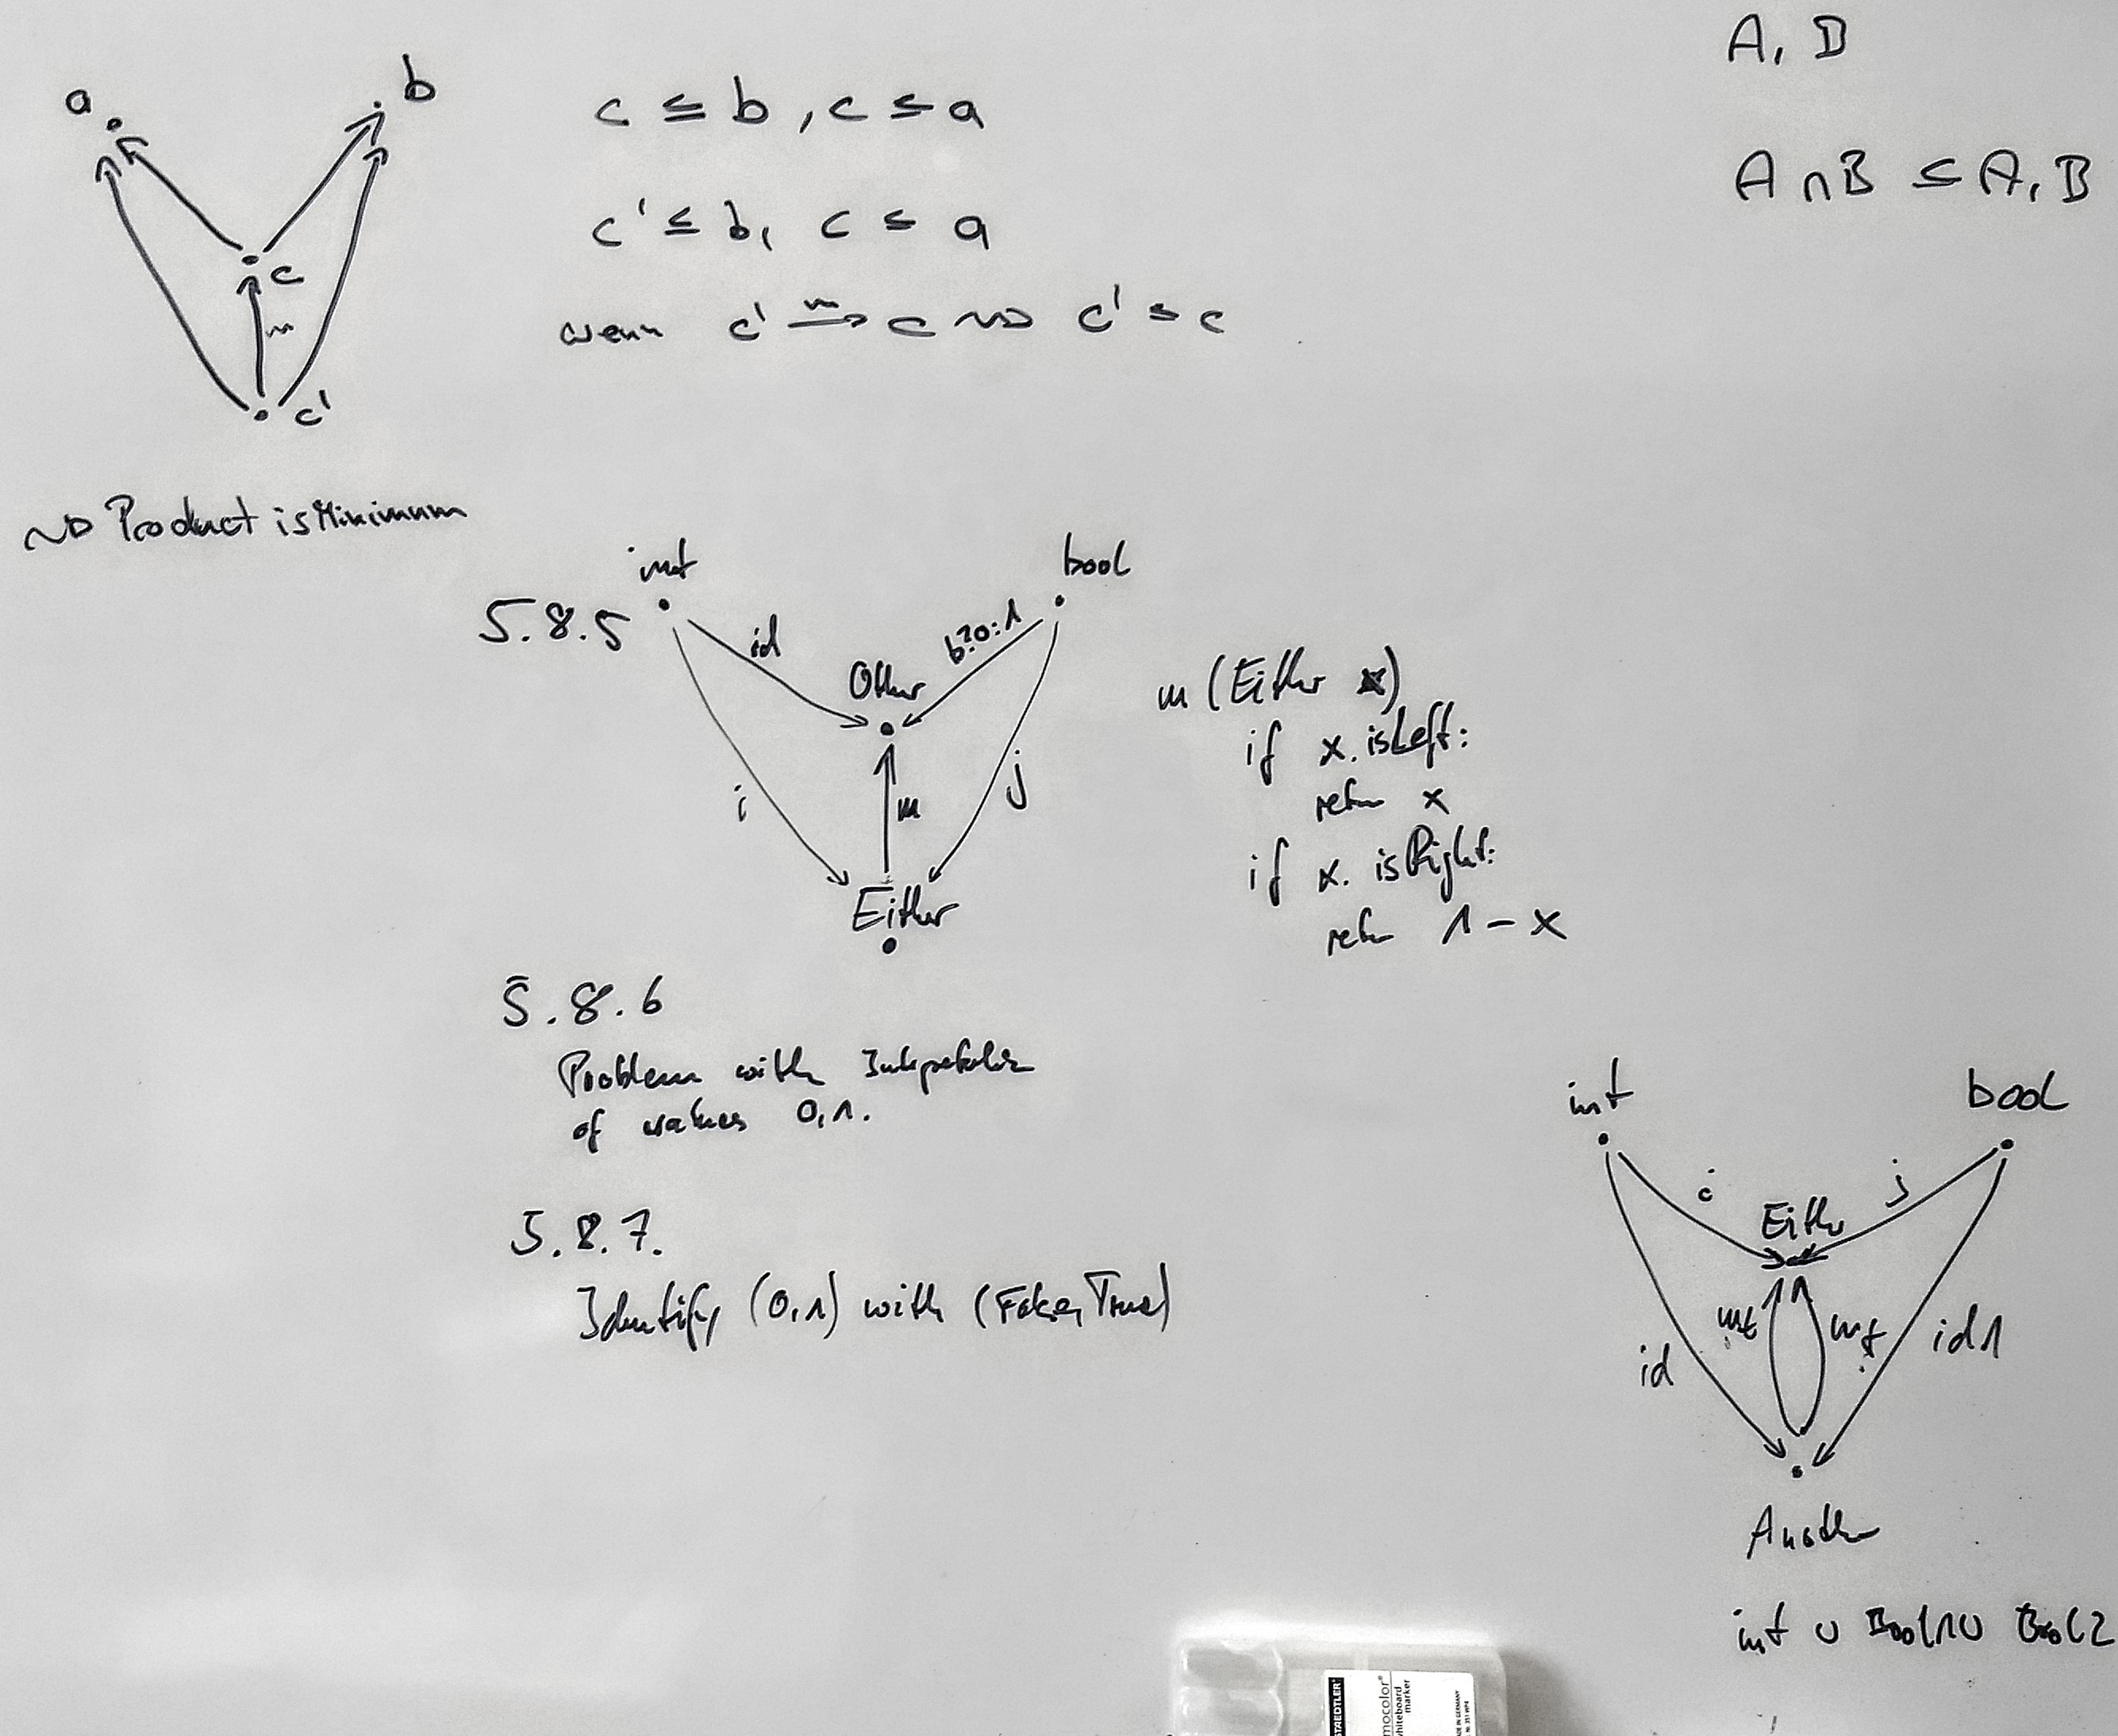 a
b
c
m
c'
c ≤ b, c ≤ a
c' ≤ b, c ≤ a
wenn c' →m c ~> c' ≤ c
A, B
A ∩ B ⊆ A, B
~> Product is Minimum
5.8.5
int
bool
id
b?0:1
Other
i
m
j
Either
m (Either x)
if x.isLeft:
return x
if x.isRight:
return 1-x
5.8.6
Problem with Interpretation
of values 0,1.
5.8.7.
Identify (0,1) with (False, True)
int
bool
i
j
Either
id
id1
Another
int ∪ Bool1 ∪ Bool2
STAEDTLER
whiteboard
marker